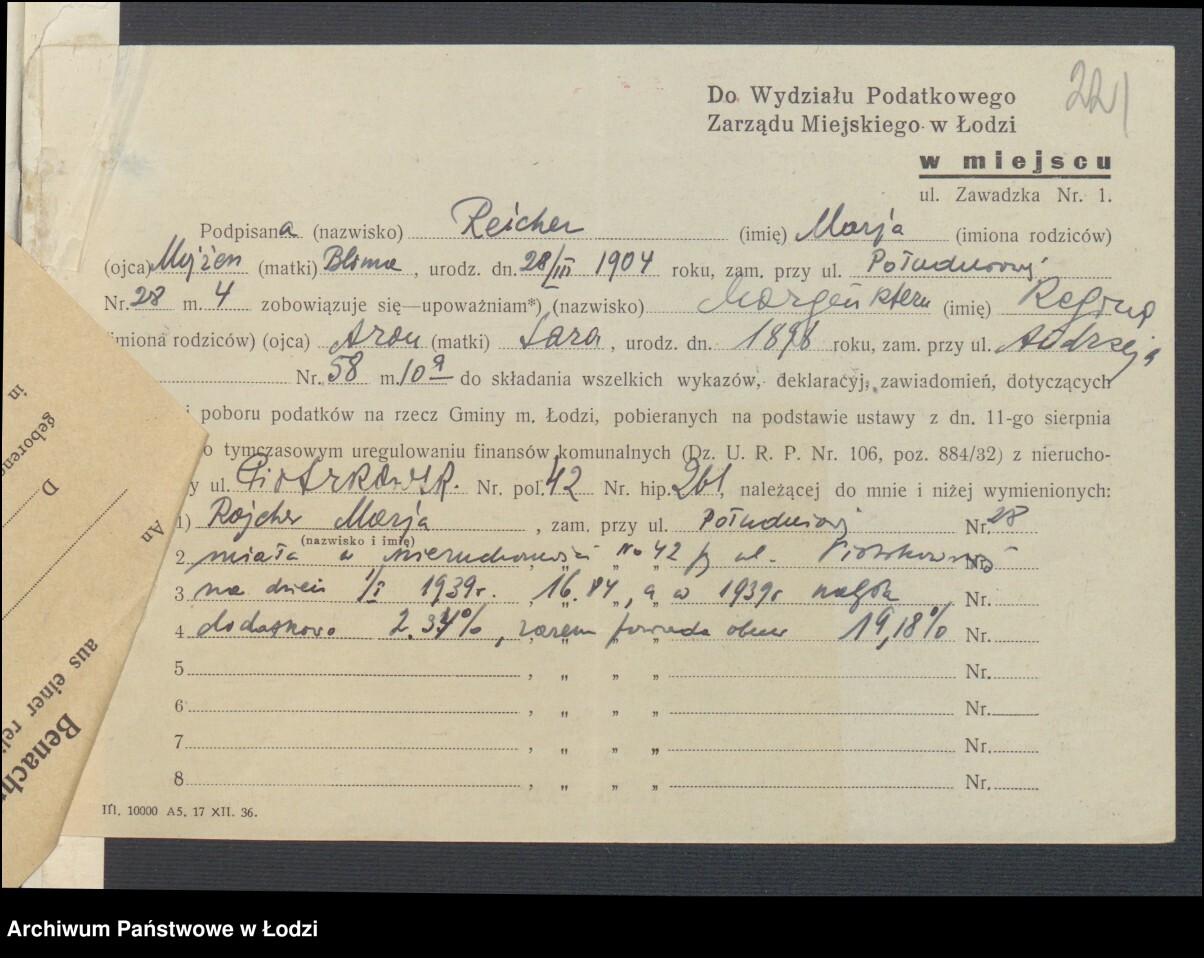 221
Do Wydziału Podatkowego
Zarządu Miejskiego w Łodzi
w miejscu
ul. Zawadzka Nr. 1.
Podpisana (nazwisko) Reicher (imię) Marja (imiona rodziców)
(ojca) (matki) Blima, urodz. dn. 28/III 1904 roku, zam. przy ul. Południowej
Nr. 28 m. 4 zobowiązuje się—upoważniam*) (nazwisko) (imię)
imiona rodziców) (ojca) Aron (matki) Sara, urodz. dn. 1898 roku, zam. przy ul. Andrzeja
Nr. 58 m. 10a do składania wszelkich wykazów, deklaracyj, zawiadomień, dotyczących
i poboru podatków na rzecz Gminy m. Łodzi, pobieranych na podstawie ustawy z dn. 11-go sierpnia
o tymczasowym uregulowaniu finansów komunalnych (Dz. U. R. P. Nr. 106, poz. 884/32) z nierucho-
y ul. Piotrkowsk. Nr. pol. 42 Nr. hip. 261, należącej do mnie i niżej wymienionych:
1) Rojcher Marja, zam. przy ul. Południowej Nr. 28
(nazwisko i imię)
2. miała w nieruchomości No 42 ul. Piotrkowskiej Nr.
3 na dzień 1/I 1939r. 16.84, a w 1939r Nr.
4 dodatkowo 2.34%, razem posiada 19,18% Nr.
5 , „ „ „ Nr.
6 , „ „ „ Nr.
7 , „ „ „ Nr.
8 , „ „ „ Nr.
III. 10000 A5. 17 XII. 36.
in
geboren
D
An
aus einer reli
Benach
Archiwum Państwowe w Łodzi